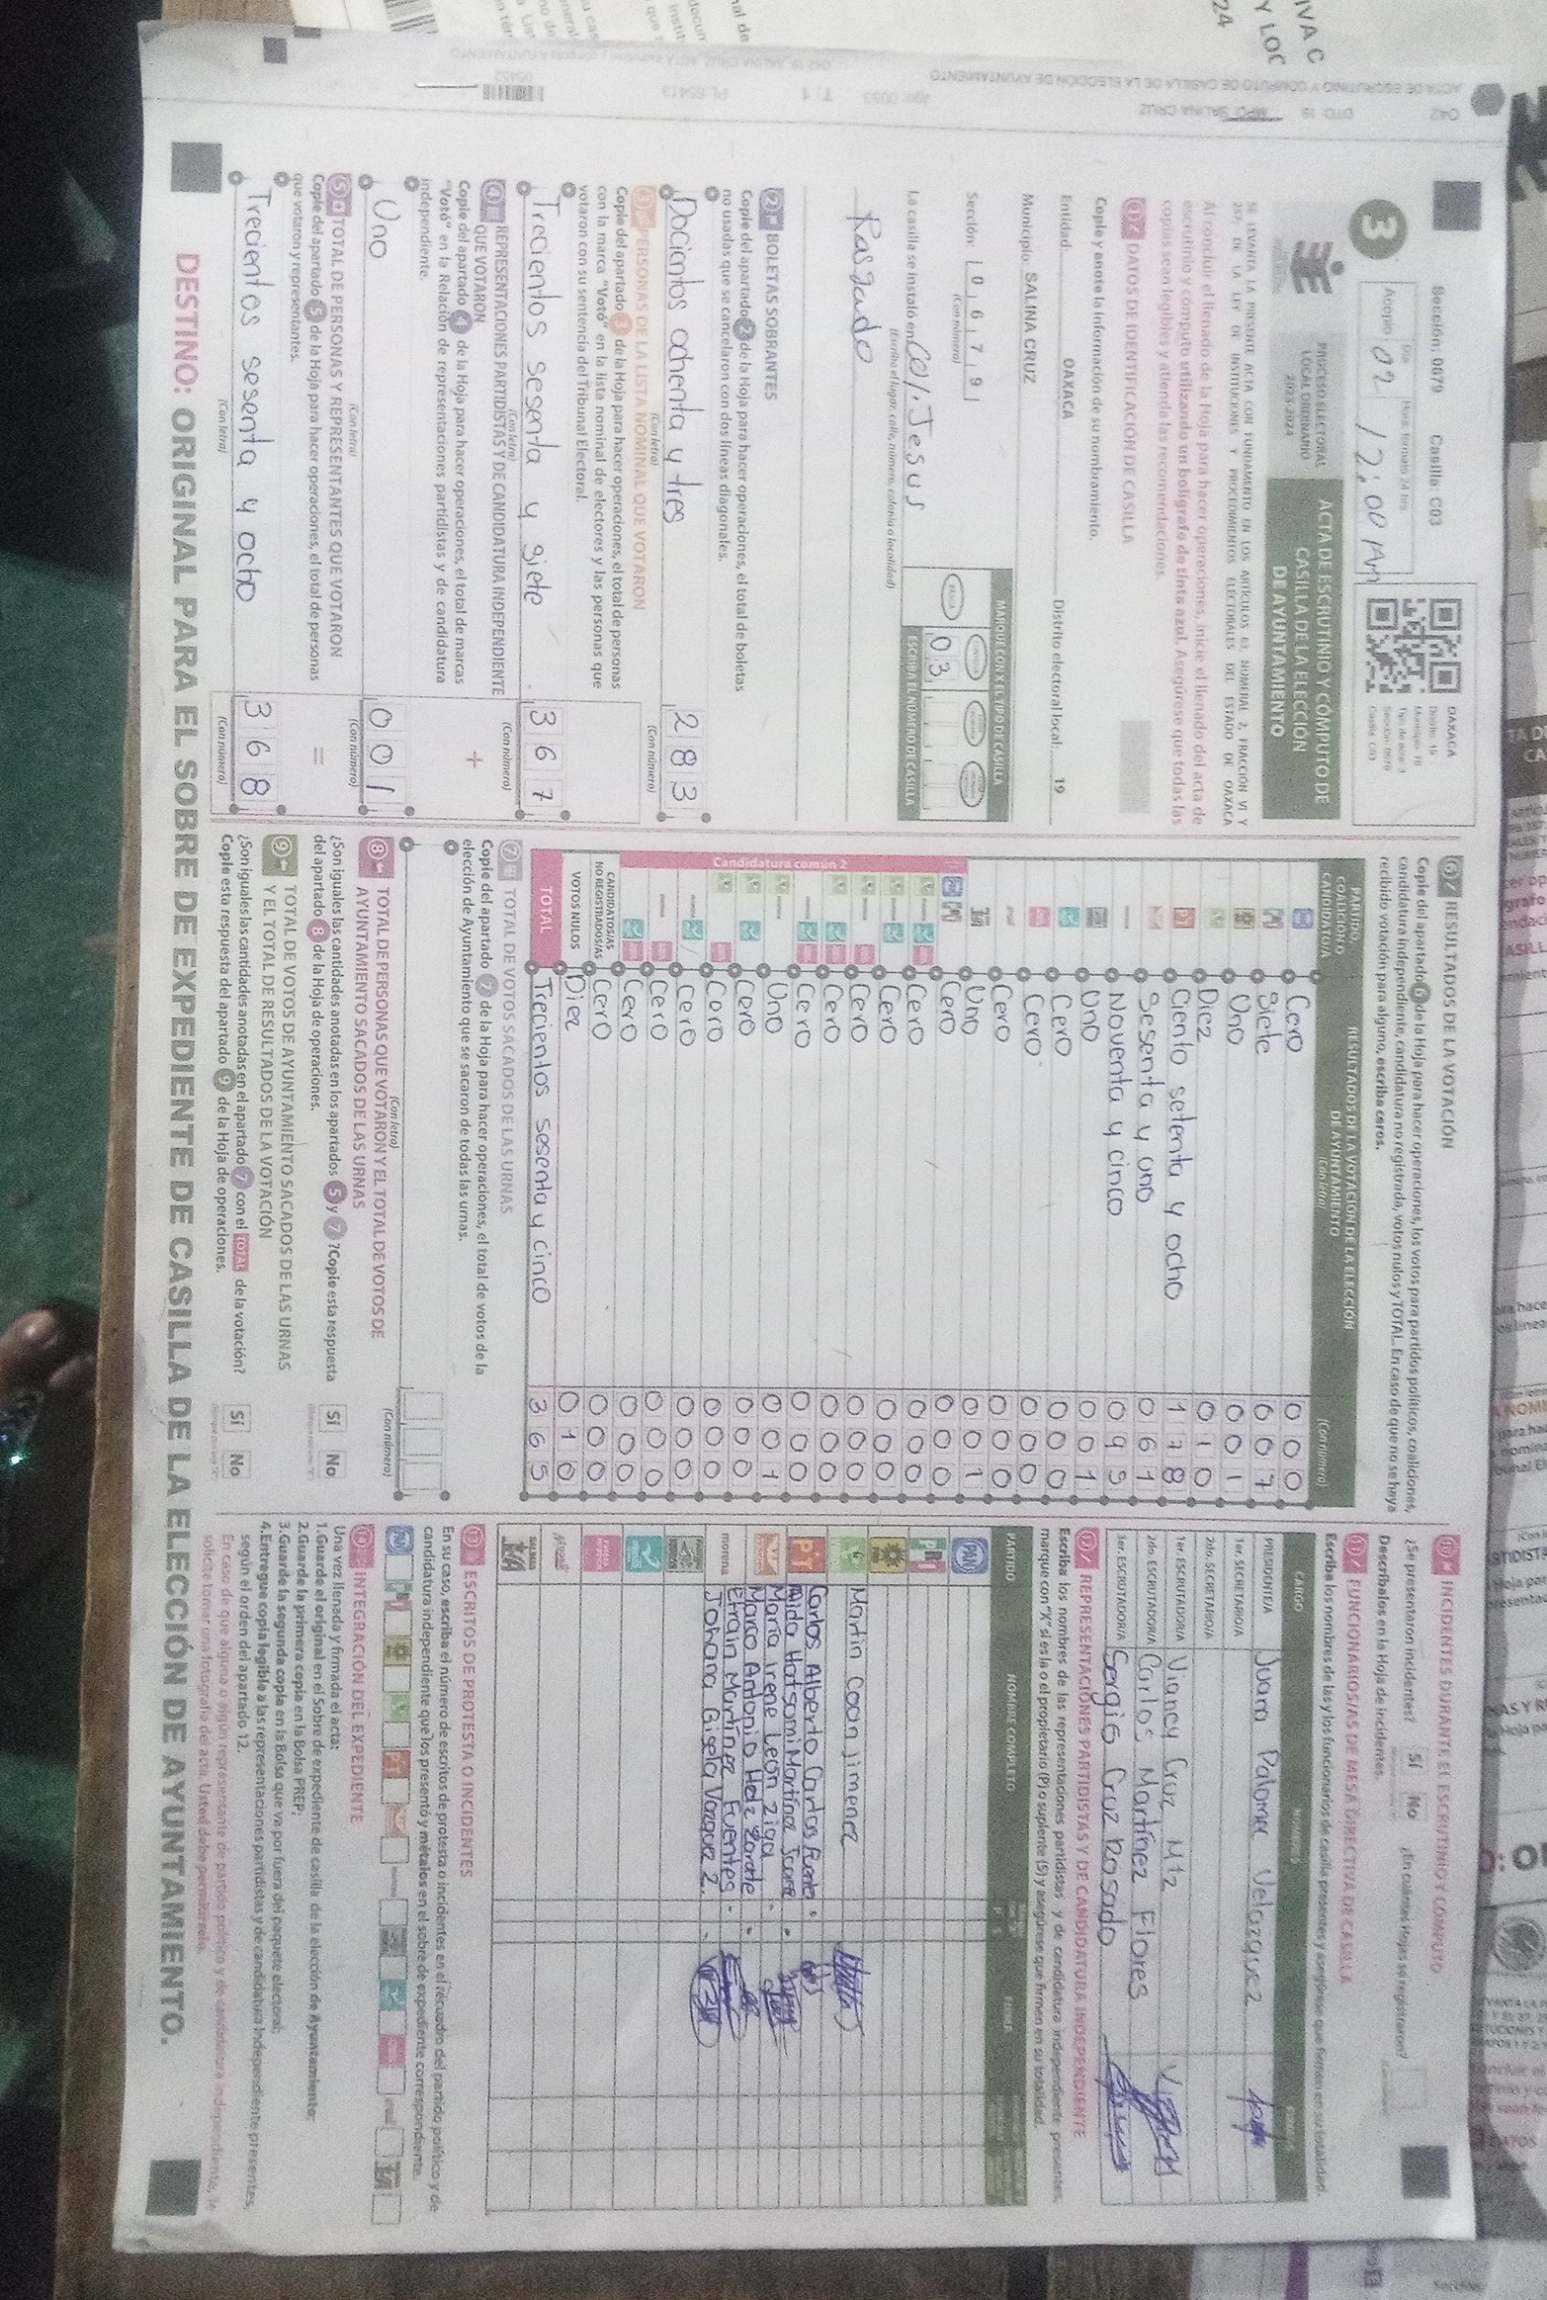 Sección: 0679 Casilla: C03
OAXACA
Distrito: 19
Casilla: C03
3
Acopio: 02 12:00 Am
PROCESO ELECTORAL
LOCAL ORDINARIO
2023-2024
ACTA DE ESCRUTINIO Y CÓMPUTO DE
CASILLA DE LA ELECCIÓN
DE AYUNTAMIENTO
SE LEVANTA LA PRESENTE ACTA CON FUNDAMENTO EN LOS ARTÍCULOS 63, NUMERAL 2, FRACCIÓN VI Y
257, DE LA LEY DE INSTITUCIONES Y PROCEDIMIENTOS ELECTORALES DEL ESTADO DE OAXACA
Al concluir el llenado de la Hoja para hacer operaciones, inicie el llenado del acta de
escrutinio y cómputo utilizando un bolígrafo de tinta azul. Asegúrese que todas las
copias sean legibles y atienda las recomendaciones.
1 DATOS DE IDENTIFICACIÓN DE CASILLA
Copie y anote la información de su nombramiento.
Entidad: OAXACA Distrito electoral local: 19
Municipio: SALINA CRUZ
Sección: 0679
(Con número)
MARQUE CON X EL TIPO DE CASILLA
03
ESCRIBA EL NÚMERO DE CASILLA
La casilla se instaló en: Col. Jesus
(Escriba el lugar: calle, número, colonia o localidad)
Rasgado
2 BOLETAS SOBRANTES
Copie del apartado 2 de la Hoja para hacer operaciones, el total de boletas
no usadas que se cancelaron con dos líneas diagonales.
Docientos ochenta y tres 283
(Con letra) (Con número)
3 PERSONAS DE LA LISTA NOMINAL QUE VOTARON
Copie del apartado 3 de la Hoja para hacer operaciones, el total de personas
con la marca "Votó" en la lista nominal de electores y las personas que
votaron con su sentencia del Tribunal Electoral.
Trecientos sesenta y siete 367
(Con letra) (Con número)
4 REPRESENTACIONES PARTIDISTAS Y DE CANDIDATURA INDEPENDIENTE
QUE VOTARON
Copie del apartado 4 de la Hoja para hacer operaciones, el total de marcas
"Votó" en la Relación de representaciones partidistas y de candidatura
independiente.
+
Uno 001
(Con letra) (Con número)
5 TOTAL DE PERSONAS Y REPRESENTANTES QUE VOTARON
Copie del apartado 5 de la Hoja para hacer operaciones, el total de personas
que votaron y representantes.
=
Trecientos sesenta y ocho 368
(Con letra) (Con número)
6 RESULTADOS DE LA VOTACIÓN
Copie del apartado 6 de la Hoja para hacer operaciones, los votos para partidos políticos, coaliciones,
candidatura independiente, candidatura no registrada, votos nulos y TOTAL. En caso de que no se haya
recibido votación para alguno, escriba ceros.
PARTIDO,
COALICIÓN O
CANDIDATO/A
RESULTADOS DE LA VOTACIÓN DE LA ELECCIÓN
DE AYUNTAMIENTO
(Con letra) (Con número)
Cero 000
Siete 007
Uno 001
Diez 010
Ciento setenta y ocho 178
Sesenta y uno 061
Noventa y cinco 095
Uno 001
Cero 000
Cero 000
Cero 000
Uno 001
Cero 000
Candidatura común 2
Cero 000
Cero 000
Cero 000
Cero 000
Cero 000
Uno 001
Cero 000
Cero 000
Cero 000
Cero 000
Cero 000
CANDIDATOS/AS
NO REGISTRADOS/AS Cero 000
VOTOS NULOS Diez 010
TOTAL Trecientos sesenta y cinco 365
7 TOTAL DE VOTOS SACADOS DE LAS URNAS
Copie del apartado 7 de la Hoja para hacer operaciones, el total de votos de la
elección de Ayuntamiento que se sacaron de todas las urnas.
(Con letra) (Con número)
8 TOTAL DE PERSONAS QUE VOTARON Y EL TOTAL DE VOTOS DE
AYUNTAMIENTO SACADOS DE LAS URNAS
¿Son iguales las cantidades anotadas en los apartados 5 y 7? Copie esta respuesta
del apartado 8 de la Hoja de operaciones.
Sí No
9 TOTAL DE VOTOS DE AYUNTAMIENTO SACADOS DE LAS URNAS
Y EL TOTAL DE RESULTADOS DE LA VOTACIÓN
¿Son iguales las cantidades anotadas en el apartado 7 con el TOTAL de la votación?
Copie esta respuesta del apartado 9 de la Hoja de operaciones.
Sí No
10 INCIDENTES DURANTE EL ESCRUTINIO Y CÓMPUTO
¿Se presentaron incidentes? Sí No ¿En cuántas Hojas se registraron?
Descríbalos en la Hoja de incidentes.
11 FUNCIONARIOS/AS DE MESA DIRECTIVA DE CASILLA
Escriba los nombres de las y los funcionarios de casilla presentes y asegúrese que firmen en su totalidad.
CARGO NOMBRES FIRMAS
PRESIDENTE/A Juana Palomec Velazquez
1er. SECRETARIO/A
2do. SECRETARIO/A
1er. ESCRUTADOR/A Viancy Cruz Mtz
2do. ESCRUTADOR/A Carlos Martínez Flores
3er. ESCRUTADOR/A Sergio Cruz Rosado
12 REPRESENTACIONES PARTIDISTAS Y DE CANDIDATURA INDEPENDIENTE
Escriba los nombres de las representaciones partidistas y de candidatura independiente presentes,
marque con "X" si es la o el propietario (P) o suplente (S) y asegúrese que firmen en su totalidad.
PARTIDO NOMBRE COMPLETO P S FIRMA
PAN
PRI
Martin Coan Jimenez
PT Carlos Alberto Carlos Fuentes
Aida Hatsomi Martínez
Maria Irene León Ziga
Marco Antonio Hdz Zarate
morena Efrain Martínez Fuentes
Johana Gisela Vazquez Z.
13 ESCRITOS DE PROTESTA O INCIDENTES
En su caso, escriba el número de escritos de protesta o incidentes en el recuadro del partido político y de
candidatura independiente que los presentó y métalos en el sobre de expediente correspondiente.
14 INTEGRACIÓN DEL EXPEDIENTE
Una vez llenada y firmada el acta:
1.Guarde el original en el Sobre de expediente de casilla de la elección de Ayuntamiento;
2.Guarde la primera copia en la Bolsa PREP;
3.Guarde la segunda copia en la Bolsa que va por fuera del paquete electoral;
4.Entregue copia legible a las representaciones partidistas y de candidatura independiente presentes,
según el orden del apartado 12.
En caso de que alguna o algún representante de partido político y de candidatura independiente, le
solicite tomar una fotografía del acta. Usted debe permitírselo.
DESTINO: ORIGINAL PARA EL SOBRE DE EXPEDIENTE DE CASILLA DE LA ELECCIÓN DE AYUNTAMIENTO.
042 DTO. 19 MPO. SALINA CRUZ
ACTA DE ESCRUTINIO Y CÓMPUTO DE CASILLA DE LA ELECCIÓN DE AYUNTAMIENTO